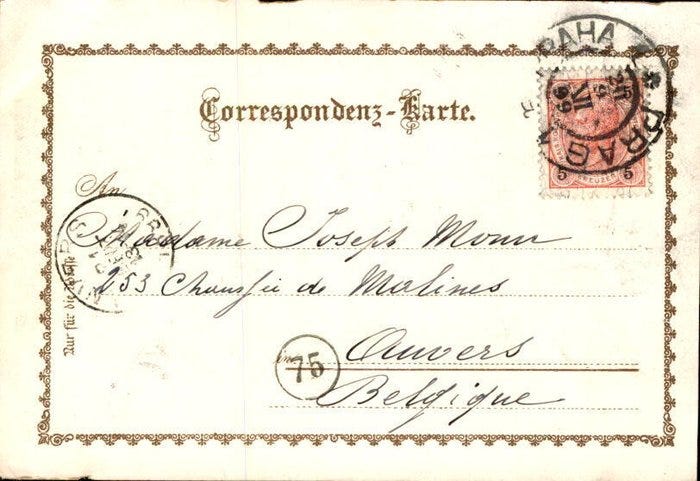 PRAHA
PRAG
Correspondenz-Karte.
5 KREUZER 5
An
Madame Joseph Monu
253 Chaussée de Malines
75
Anvers
Belgique
Nur für die Adresse
ANVERS